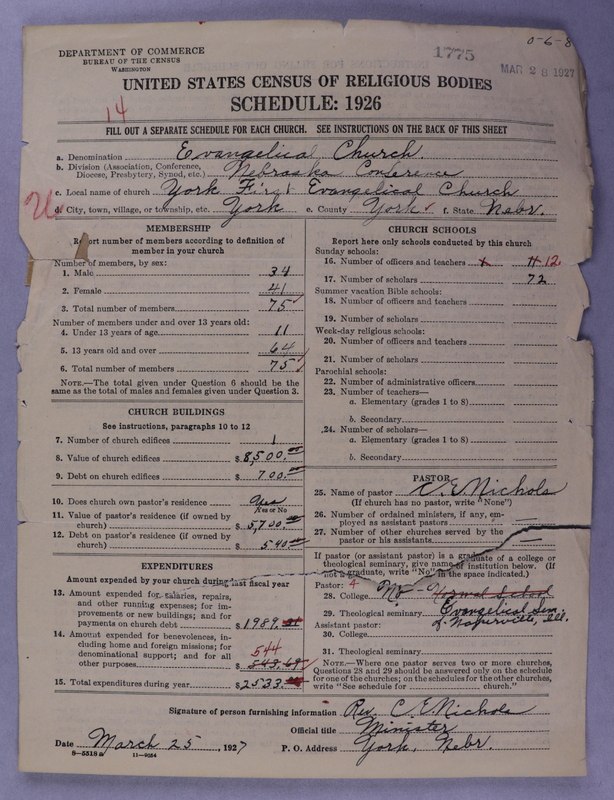 0-6-8
DEPARTMENT OF COMMERCE
BUREAU OF THE CENSUS
WASHINGTON
1775
MAR 28 1927
UNITED STATES CENSUS OF RELIGIOUS BODIES
SCHEDULE: 1926
14
FILL OUT A SEPARATE SCHEDULE FOR EACH CHURCH. SEE INSTRUCTIONS ON THE BACK OF THIS SHEET
a. Denomination Evangelical Church.
b. Division (Association, Conference, Diocese, Presbytery, Synod, etc.) Nebraska Conference
c. Local name of church York First Evangelical Church
d. City, town, village, or township, etc. York e. County York f. State Nebr.
MEMBERSHIP
Report number of members according to definition of
member in your church
Number of members, by sex:
1. Male 34
2. Female 41
3. Total number of members 75
Number of members under and over 13 years old:
4. Under 13 years of age 11
5. 13 years old and over 64
6. Total number of members 75
NOTE.—The total given under Question 6 should be the
same as the total of males and females given under Question 3.
CHURCH BUILDINGS
See instructions, paragraphs 10 to 12
7. Number of church edifices 1
8. Value of church edifices $8,500.00
9. Debt on church edifices $700.00
10. Does church own pastor's residence yes
Yes or No
11. Value of pastor's residence (if owned by
church) $5,700.00
12. Debt on pastor's residence (if owned by
church) $540.00
EXPENDITURES
Amount expended by your church during last fiscal year
13. Amount expended for salaries, repairs,
and other running expenses; for im-
provements or new buildings; and for
payments on church debt $1989.
14. Amount expended for benevolences,
including home and foreign missions; for
denominational support; and for all
544
other purposes $543.69
15. Total expenditures during year $2533.
CHURCH SCHOOLS
Report here only schools conducted by this church
Sunday schools:
16. Number of officers and teachers 12
17. Number of scholars 72
Summer vacation Bible schools:
18. Number of officers and teachers
19. Number of scholars
Week-day religious schools:
20. Number of officers and teachers
21. Number of scholars
Parochial schools:
22. Number of administrative officers
23. Number of teachers—
a. Elementary (grades 1 to 8)
b. Secondary
24. Number of scholars—
a. Elementary (grades 1 to 8)
b. Secondary
PASTOR
25. Name of pastor C. E. Nichols
(If church has no pastor, write "None")
26. Number of ordained ministers, if any, em-
ployed as assistant pastors
27. Number of other churches served by the
pastor or his assistants
If pastor (or assistant pastor) is a graduate of a college or
theological seminary, give name of institution below. (If
not a graduate, write "No" in the space indicated.)
Pastor: 4
28. College No Normal School
29. Theological seminary Evangelical Sem.
of Naperville, Ill.
Assistant pastor:
30. College
31. Theological seminary
NOTE.—Where one pastor serves two or more churches,
Questions 28 and 29 should be answered only on the schedule
for one of the churches; on the schedules for the other churches,
write "See schedule for church."
Signature of person furnishing information Rev. C. E. Nichols
Official title Minister
Date March 25, 1927 P. O. Address York, Nebr.
8-5518a 11-9054